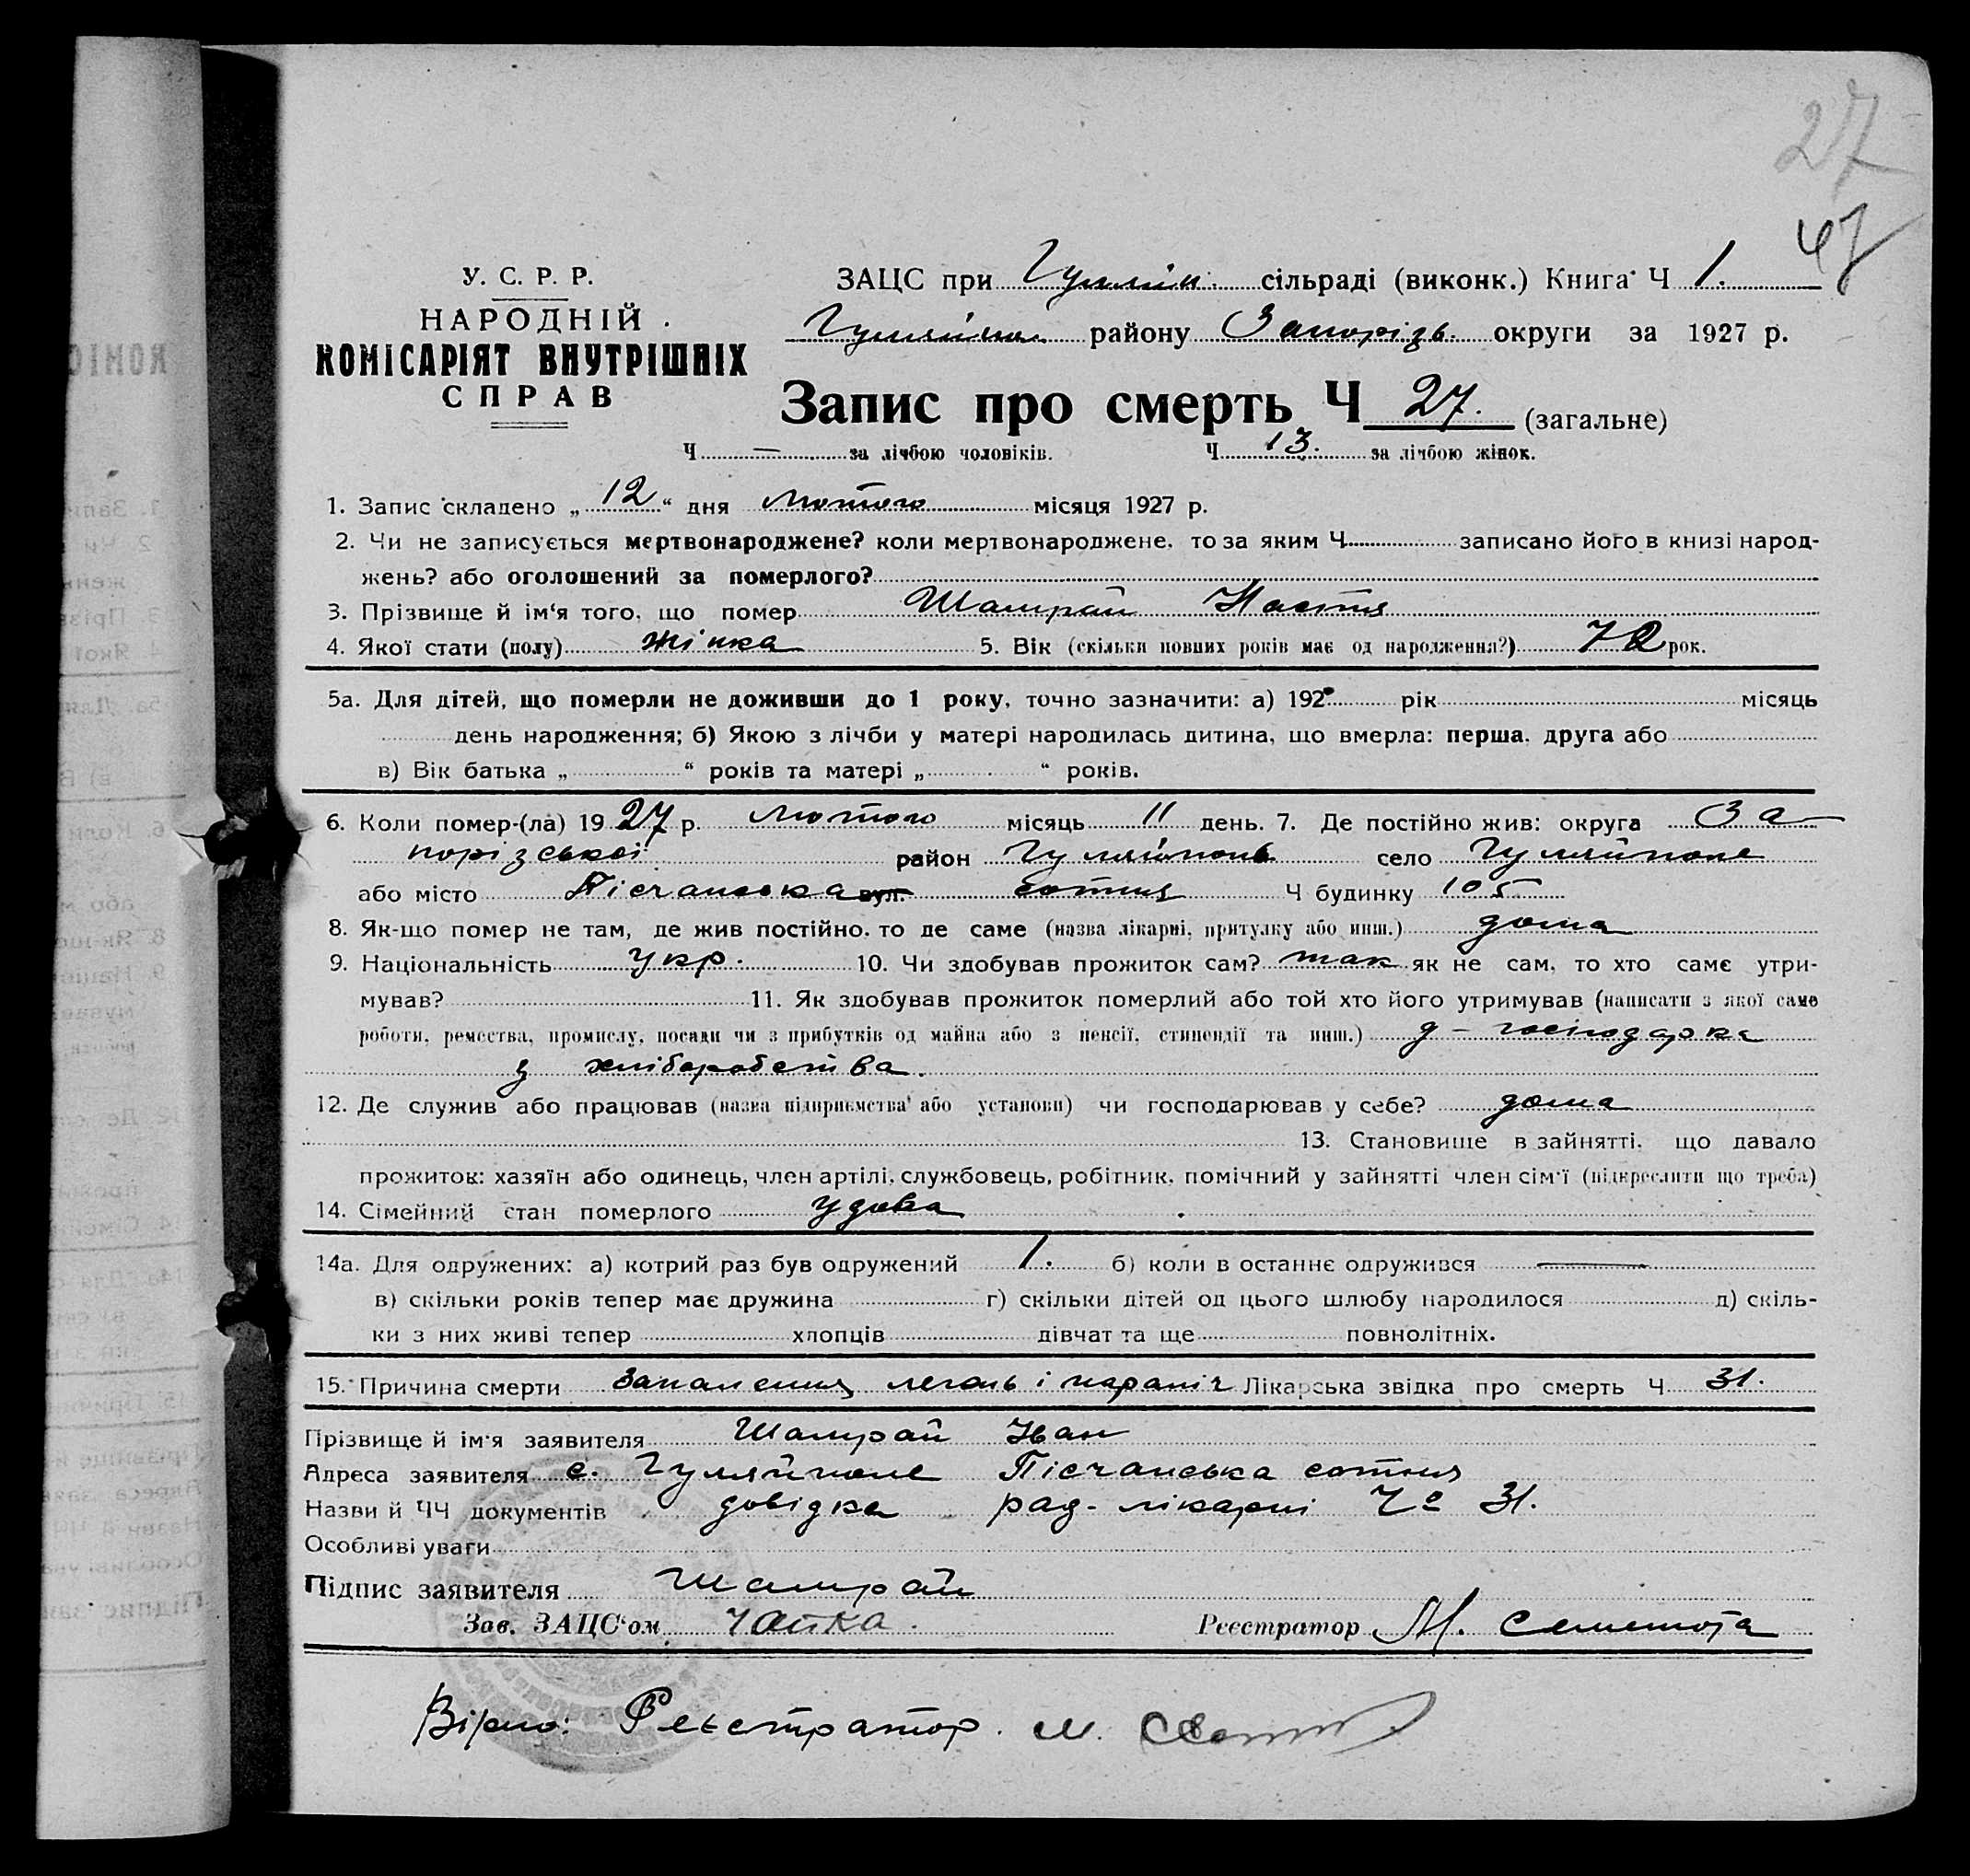 27
47
У. С. Р. Р.
НАРОДНІЙ
КОМІСАРІЯТ ВНУТРІШНІХ
СПРАВ
ЗАЦС при Гуляйп. сільраді (виконк.) Книга Ч 1.
Гуляйпол. району Запорізь. округи за 1927 р.
Запис про смерть Ч 27. (загальне)
Ч — за лічбою чоловіків. Ч 13. за лічбою жінок.
1. Запис складено „ 12 “ дня лютого місяця 1927 р.
2. Чи не записується мертвонароджене? коли мертвонароджене, то за яким Ч записано його в книзі народ-
жень? або оголошений за померлого?
3. Прізвище й ім‘я того, що помер Шамрай Настя
4. Якої стати (полу) жінка 5. Вік (скільки повних років має од народження?) 72 рок.
5а. Для дітей, що померли не доживши до 1 року, точно зазначити: а) 192 рік місяць
день народження; б) Якою з лічби у матері народилась дитина, що вмерла: перша, друга або
в) Вік батька „ “ років та матері „ “ років.
6. Коли помер-(ла) 19 27 р. лютого місяць 11 день. 7. Де постійно жив: округа За-
порізської район Гуляйполе село Гуляйполе
або місто Пісчанська вул. сотня Ч будинку 105
8. Як-що помер не там, де жив постійно, то де саме (назва лікарні, притулку або инш.) дома
9. Національність укр. 10. Чи здобував прожиток сам? так як не сам, то хто саме утри-
мував? 11. Як здобував прожиток померлий або той хто його утримував (написати з якої саме
роботи, ремества, промислу, посади чи з прибутків од майна або з пенсії, стипендії та инш.) д-господарка
з хліборобства.
12. Де служив або працював (назва підприємства або установи) чи господарював у себе? дома
13. Становище в зайнятті, що давало
прожиток: хазяїн або одинець, член артілі, службовець, робітник, помічний у зайнятті член сім‘ї (підкреслити що треба)
14. Сімейний стан померлого удова
14а. Для одружених: а) котрий раз був одружений 1. б) коли в останнє одружився —
в) скільки років тепер має дружина г) скільки дітей од цього шлюбу народилося д) скіль-
ки з них живі тепер хлопців дівчат та ще повнолітніх.
15. Причина смерти Запалення легень і параліч Лікарська звідка про смерть Ч 31.
Прізвище й ім‘я заявителя Шамрай Іван
Адреса заявителя с. Гуляйполе Пісчанська сотня
Назви й ЧЧ документів довідка рад-лікарні Ч° 31.
Особливі уваги
Підпис заявителя Шамрай
Зав. ЗАЦС‘ом Чайка. Реєстратор М.
Вірно: Реєстратор. М.